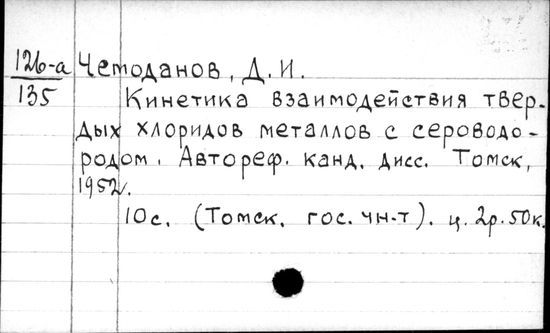 126-а Чемоданов, Д. И.
135
Кинетика взаимодействия твер-
дых хлоридов металлов с сероводо-
родом. Автореф. канд. дисс. Томск,
1952.
10с. (Томск. гос. ун-т). ц. 2р. 50к.